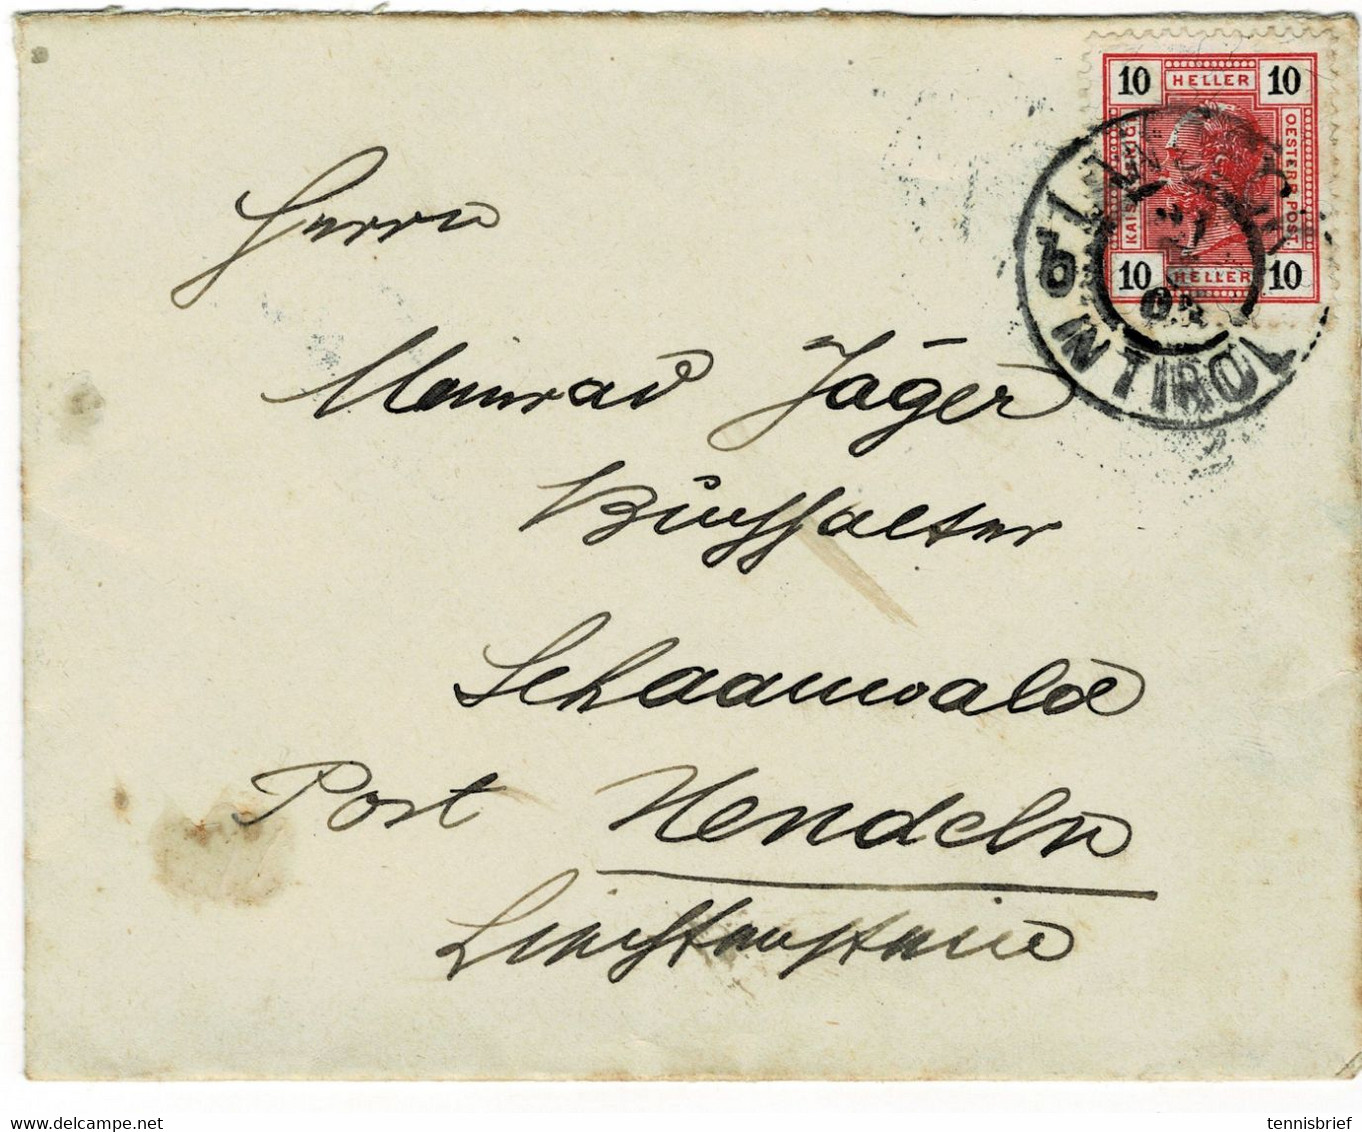 10 HELLER 10
OESTERR. POST.
10 HELLER 10
IN TIROL
Herrn
Meinrad Jäger
Buchhalter
Schaanwald
Post Nendeln
Liechtenstein
www.delcampe.net
tennisbrief